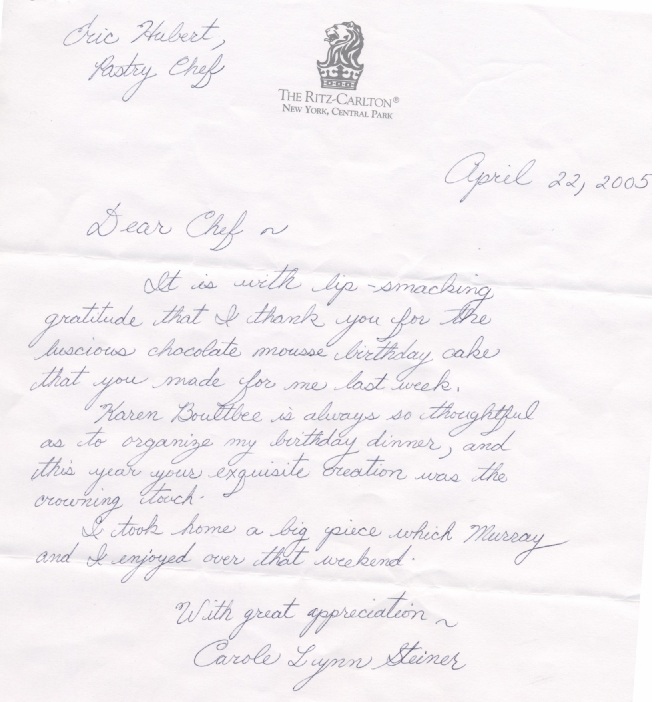 Eric Hubert,
Pastry Chef
THE RITZ-CARLTON®
NEW YORK, CENTRAL PARK
April 22, 2005
Dear Chef ~
It is with lip-smacking
gratitude that I thank you for the
luscious chocolate mousse birthday cake
that you made for me last week.
Karen Boultbee is always so thoughtful
as to organize my birthday dinner, and
this year your exquisite creation was the
crowning touch.
I took home a big piece which Murray
and I enjoyed over that weekend.
With great appreciation ~
Carole Lynn Steiner